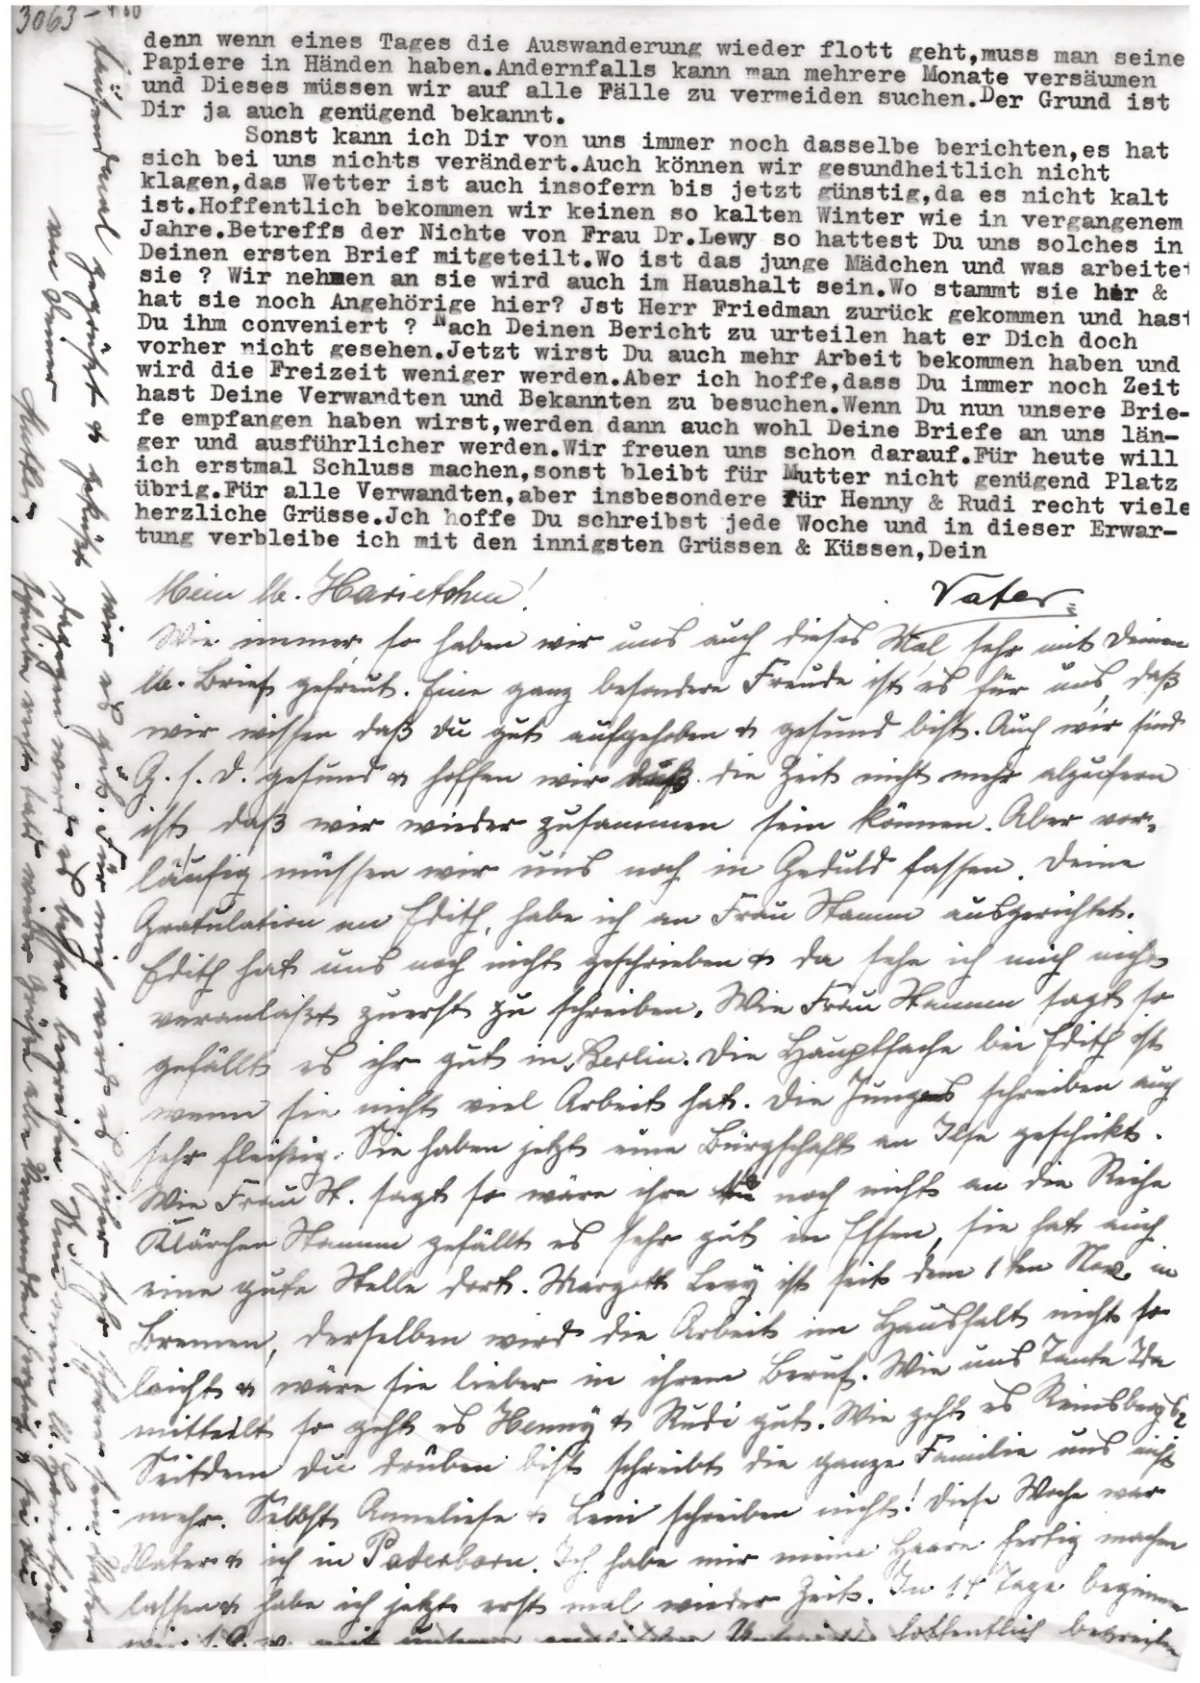 3063-
denn wenn eines Tages die Auswanderung wieder flott geht,muss man seine
Papiere in Händen haben.Andernfalls kann man mehrere Monate versäumen
und Dieses müssen wir auf alle Fälle zu vermeiden suchen.Der Grund ist
Dir ja auch genügend bekannt.
Sonst kann ich Dir von uns immer noch dasselbe berichten,es hat
sich bei uns nichts verändert.Auch können wir gesundheitlich nicht
klagen,das Wetter ist auch insofern bis jetzt günstig,da es nicht kalt
ist.Hoffentlich bekommen wir keinen so kalten Winter wie in vergangenem
Jahre.Betreffs der Nichte von Frau Dr.Lewy so hattest Du uns solches in
Deinen ersten Brief mitgeteilt.Wo ist das junge Mädchen und was arbeitet
sie ? Wir nehmen an sie wird auch im Haushalt sein.Wo stammt sie her &
hat sie noch Angehörige hier? Jst Herr Friedman zurück gekommen und hast
Du ihm conveniert ? Nach Deinen Bericht zu urteilen hat er Dich doch
vorher nicht gesehen.Jetzt wirst Du auch mehr Arbeit bekommen haben und
wird die Freizeit weniger werden.Aber ich hoffe,dass Du immer noch Zeit
hast Deine Verwandten und Bekannten zu besuchen.Wenn Du nun unsere Brie-
fe empfangen haben wirst,werden dann auch wohl Deine Briefe an uns län-
ger und ausführlicher werden.Wir freuen uns schon darauf.Für heute will
ich erstmal Schluss machen,sonst bleibt für Mutter nicht genügend Platz
übrig.Für alle Verwandten,aber insbesondere für Henny & Rudi recht viele
herzliche Grüsse.Jch hoffe Du schreibst jede Woche und in dieser Erwar-
tung verbleibe ich mit den innigsten Grüssen & Küssen,Dein
Vater
Mein lb. Harietchen!
Wie immer, so haben wir uns auch dieses Mal sehr mit Deinen
lb. Brief gefreut. Eine ganz besondere Freude ist es für uns, daß
wir wissen daß du gut aufgehoben & gesund bist. Auch wir sind
G. s. D. gesund & hoffen wir daß die Zeit nicht mehr alzufern
ist, daß wir wieder zusammen sein können. Aber vor-
läufig müssen wir uns noch in Geduld fassen. Deine
Gratulation an Edith, habe ich an Frau Stamm ausgerichtet.
Edith hat uns noch nicht geschrieben & da sehe ich mich nicht
veranlaßt zuerst zu schreiben. Wie Frau Stamm sagt so
gefällt es ihr gut in Berlin. Die Hauptsache bei Edith ist
wenn sie nicht viel Arbeit hat. Die Jungens schreiben auch
sehr fleißig. Sie haben jetzt eine Bürgschaft an Ilse geschikt.
Wie Frau St. sagt so wäre ihre noch nicht an die Reihe
Klärchen Stamm gefällt es sehr gut in Essen, sie hat auch
eine gute Stelle dort. Margott Levy ist seit dem 1ten Nov. in
Bremen, derselben wird die Arbeit im Haushalt nicht so
leicht & wäre sie lieber in ihrem Beruf. Wie uns Tante Ida
mitteilt so geht es Henny & Rudi gut. Wie geht es Reinsbergs?
Seitdem du drüben bist schreibt die ganze Familie uns nicht
mehr. Selbst Anneliese & Leni schreiben nicht! Diese Woche war
Vater & ich in Paderborn. Ich habe mir meine Haare fertig machen
lassen & habe ich jetzt erst mal wieder Zeit. In 14 Tage beginnen
wir mit hoffentlich begreifen
wir es gut. Für mich wird es sicher sehr schwer sein. Vater
dagegen wird es besser begreifen. Nun mein lb. Harietchen
alle Verwandten herzlich & sei du
tausendmal gegrüßt & geküßt
von Deiner
Mutter